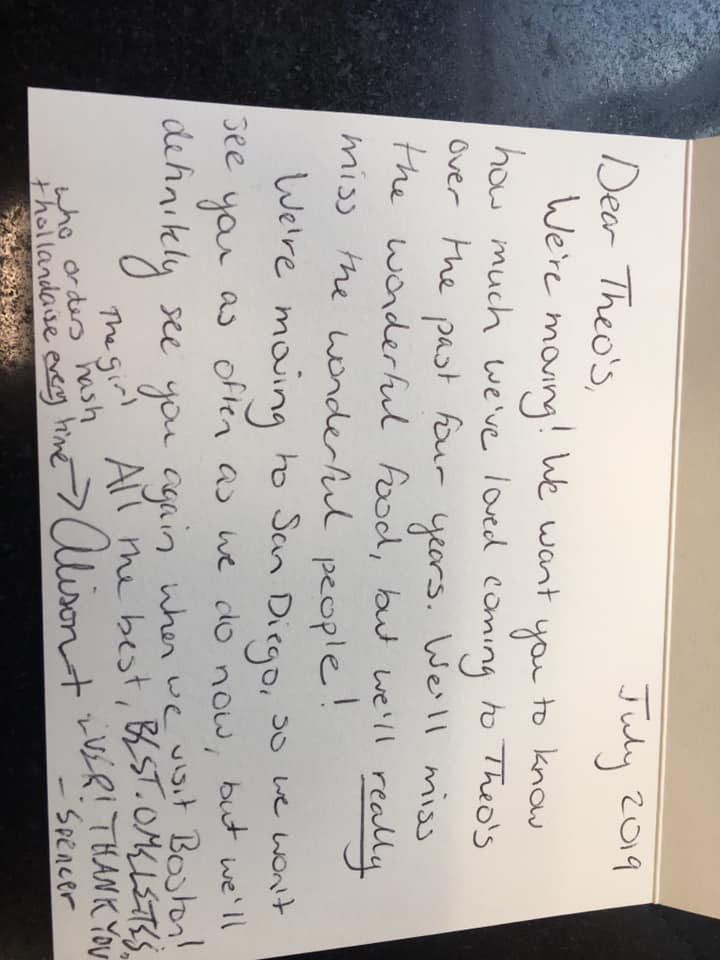 July 2019
Dear Theo's,
We're moving! We want you to know
how much we've loved coming to Theo's
over the past four years. We'll miss
the wonderful food, but we'll really
miss the wonderful people!
We're moving to San Diego, so we won't
see you as often as we do now, but we'll
definitely see you again when we visit Boston!
All the best,
The girl
who orders hash
+ hollandaise every time → Alison +
BEST. OMELETTES.
EVER! THANK YOU
- Spencer